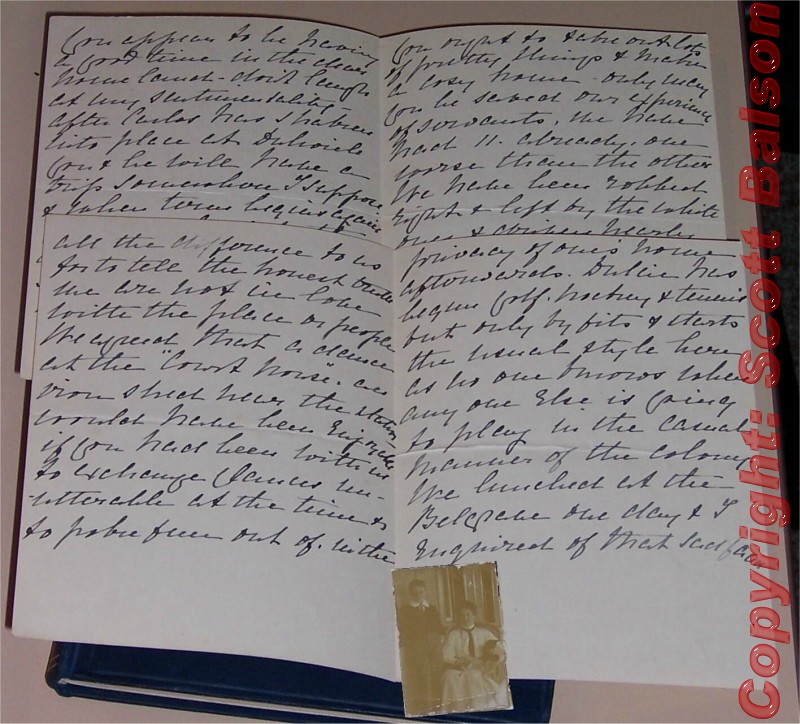 You appear to be having
a good time in the dear
home land - don't laugh
at my sentimentality -
after Carlos has shaken
into place at
you & he will have a
trip somewhere I suppose
& when term begins again
You ought to take out lots
of pretty things & make
a cosy home - only may
you be saved our experience
of servants, we have
had 11. already, one
worse than the other
We have been robbed
right & left by the white
ones &
all the difference to us
for to tell the honest
we are not in love
with the place or people
We agreed that a dance
at the "Court House". an
iron shed near the station
would have been enjoyable
if you had been with us
to exchange glances un-
-utterable at the time &
to poke fun out of. in the
privacy of one's home
afterwards. Dulcie has
begun golf, hockey & tennis
but only by fits & starts
the usual style here
as no one knows when
any one else is going
to play in the casual
manner of the colony
We lunched at the
Belgrave one day & I
enquired of that sad faced
Copyright: Scott Balson